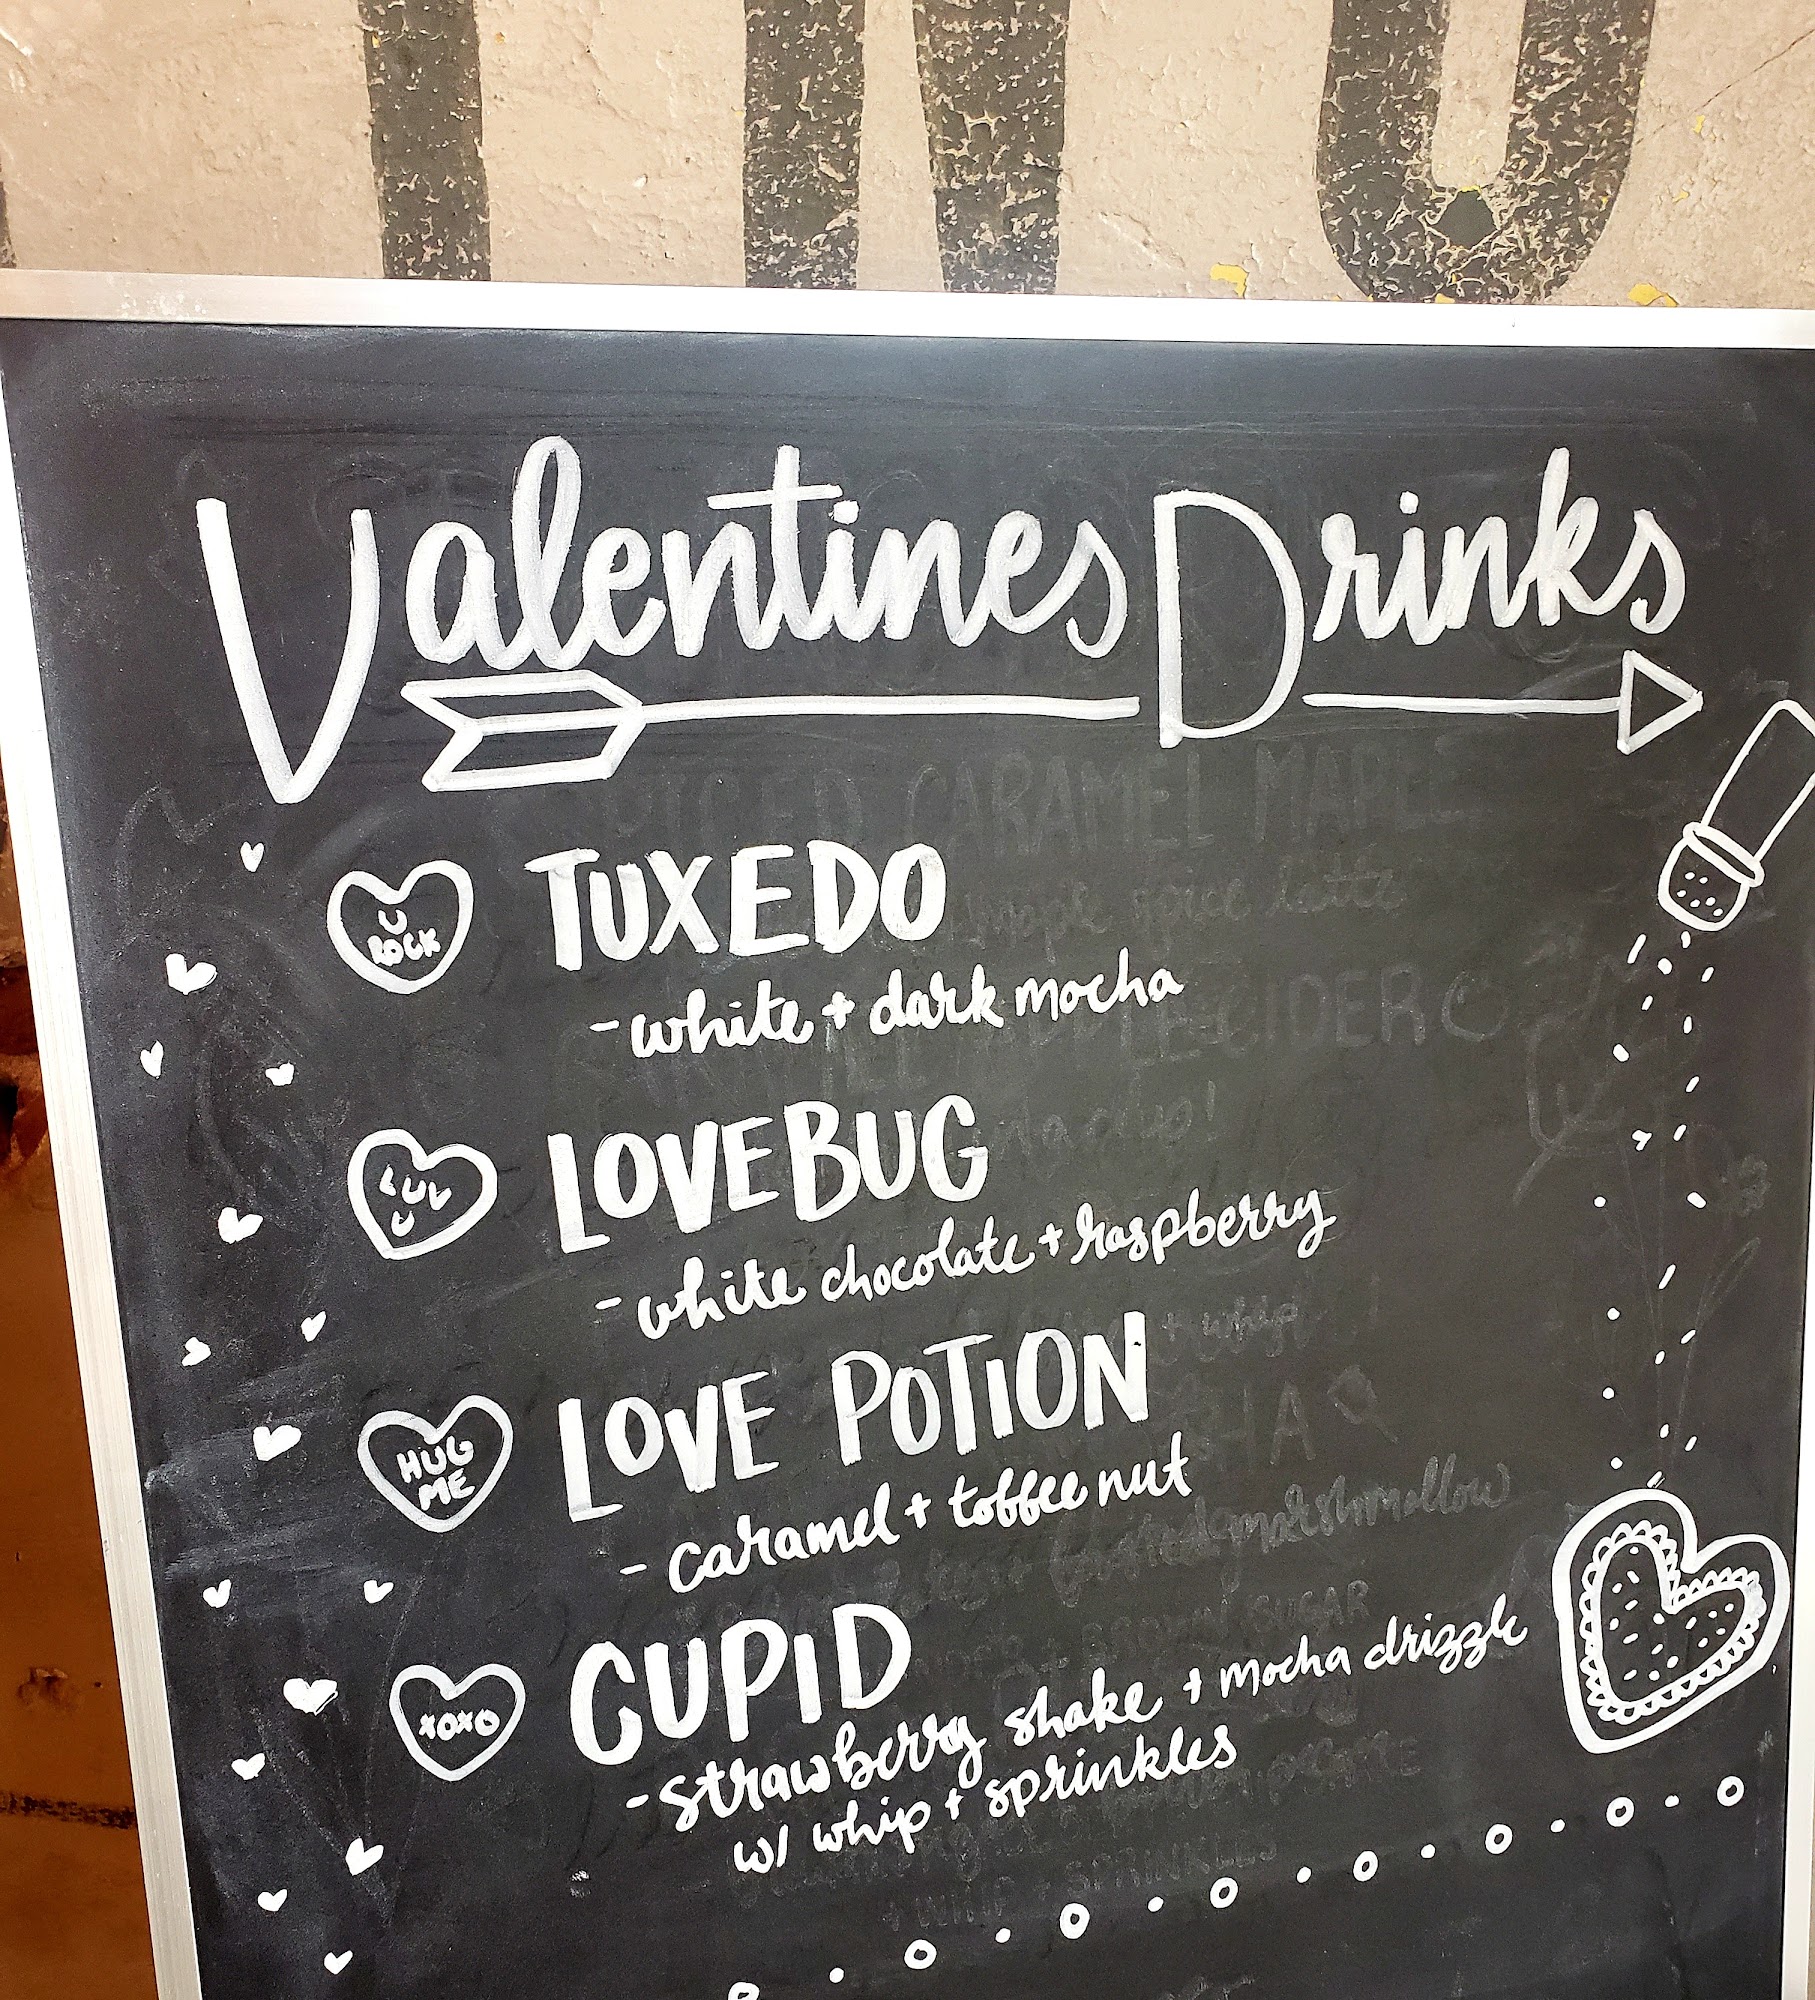 Valentines Drinks
U
ROCK
TUXEDO
- white + dark mocha
LUV
U
LOVEBUG
- white chocolate + raspberry
HUG
ME
LOVE POTION
- caramel + toffee nut
XOXO
CUPID
- strawberry shake + mocha drizzle
w/ whip + sprinkles